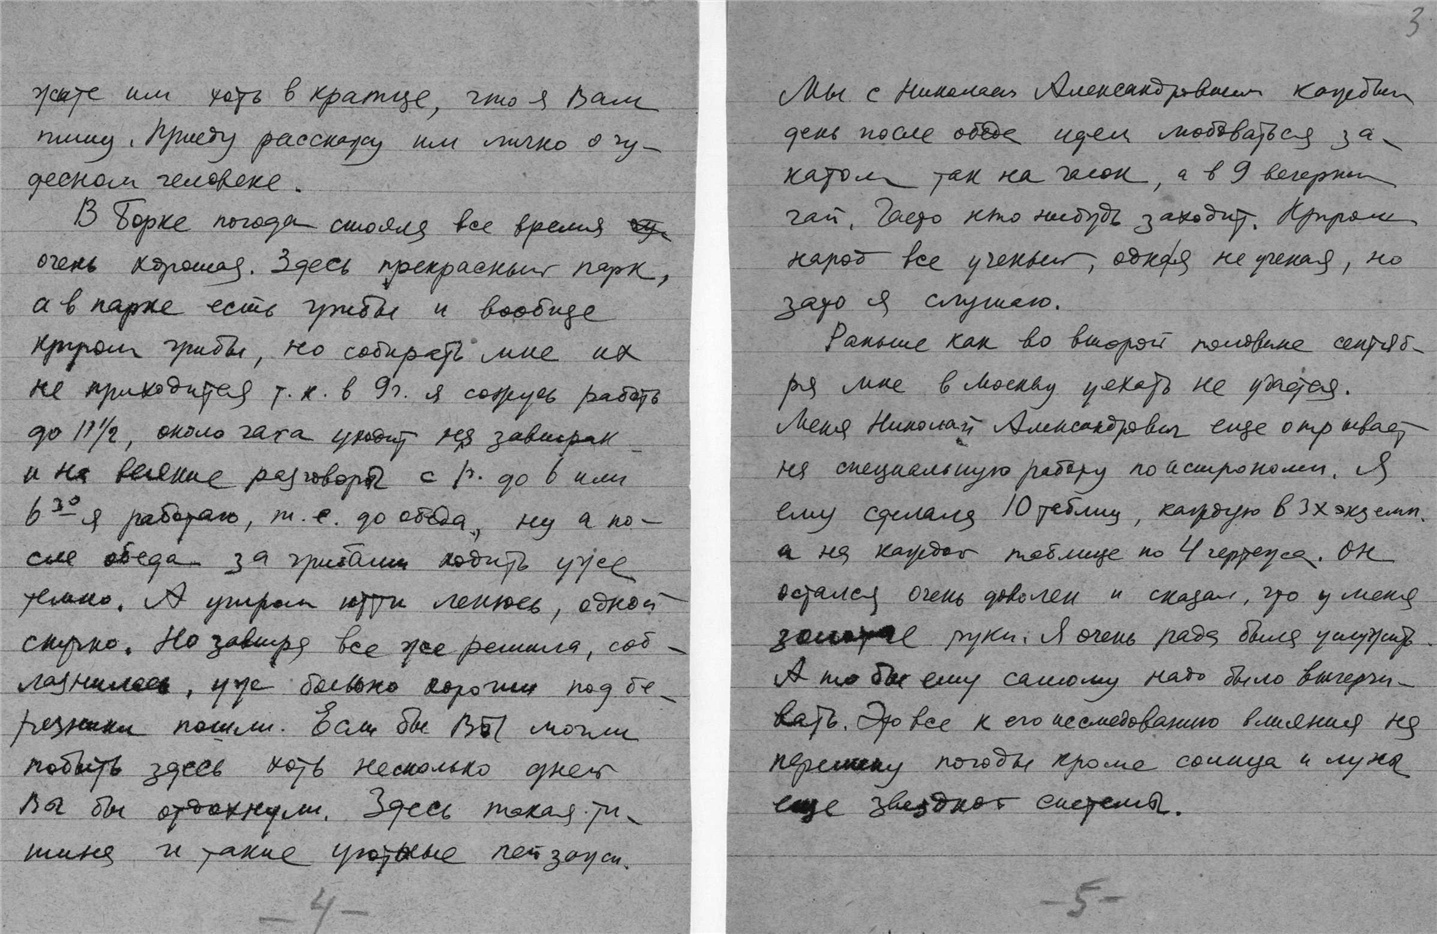 жите им хоть в кратце, что я Вам
пишу. Приеду расскажу им лично о чу-
десном человеке.
В Борке погода стояла все время
очень хорошая. Здесь прекрасный парк,
а в парке есть грибы и вообще
кругом грибы, но собирать мне их
не приходится т.к. в 9 г. я сажусь работать
до 11 1/2, около часа уходит на завтрак
и на всякие разговоры с 1 г. до 6 или
6 30 я работаю, т.е. до обеда, ну а по-
сле обеда за грибами ходить уже
темно. А утром итти ленюсь, одной
скучно. Но завтра все же решила, соб-
лазнилась, уж больно хороши под бе-
резники пошли. Если бы Вы могли
побыть здесь хоть несколько дней
Вы бы отдохнули. Здесь такая ти-
шина и такие уютные пейзажи.
- 4 -
3
Мы с Николаем Александровичем каждый
день после обеда идем любоваться за-
катом так на часок, а в 9 вечерний
чай. Часто кто нибудь заходит. Кругом
народ все ученый, одна я не ученая, но
зато я слушаю.
Раньше как во второй половине сентяб-
ря мне в Москву уехать не удастся.
Меня Николай Александрович еще отрывает
на специальную работу по астрономи. Я
ему сделала 10 таблиц, каждую в 3х экземп.
а на каждой таблице по 4 чертежа. Он
остался очень доволен и сказал, что у меня
золотые руки. Я очень рада была услужить.
А то бы ему самому надо было вычерчи-
вать. Это все к его исследованию влияния на
перемену погоды кроме солнца и луны
еще звездной системы.
- 5 -